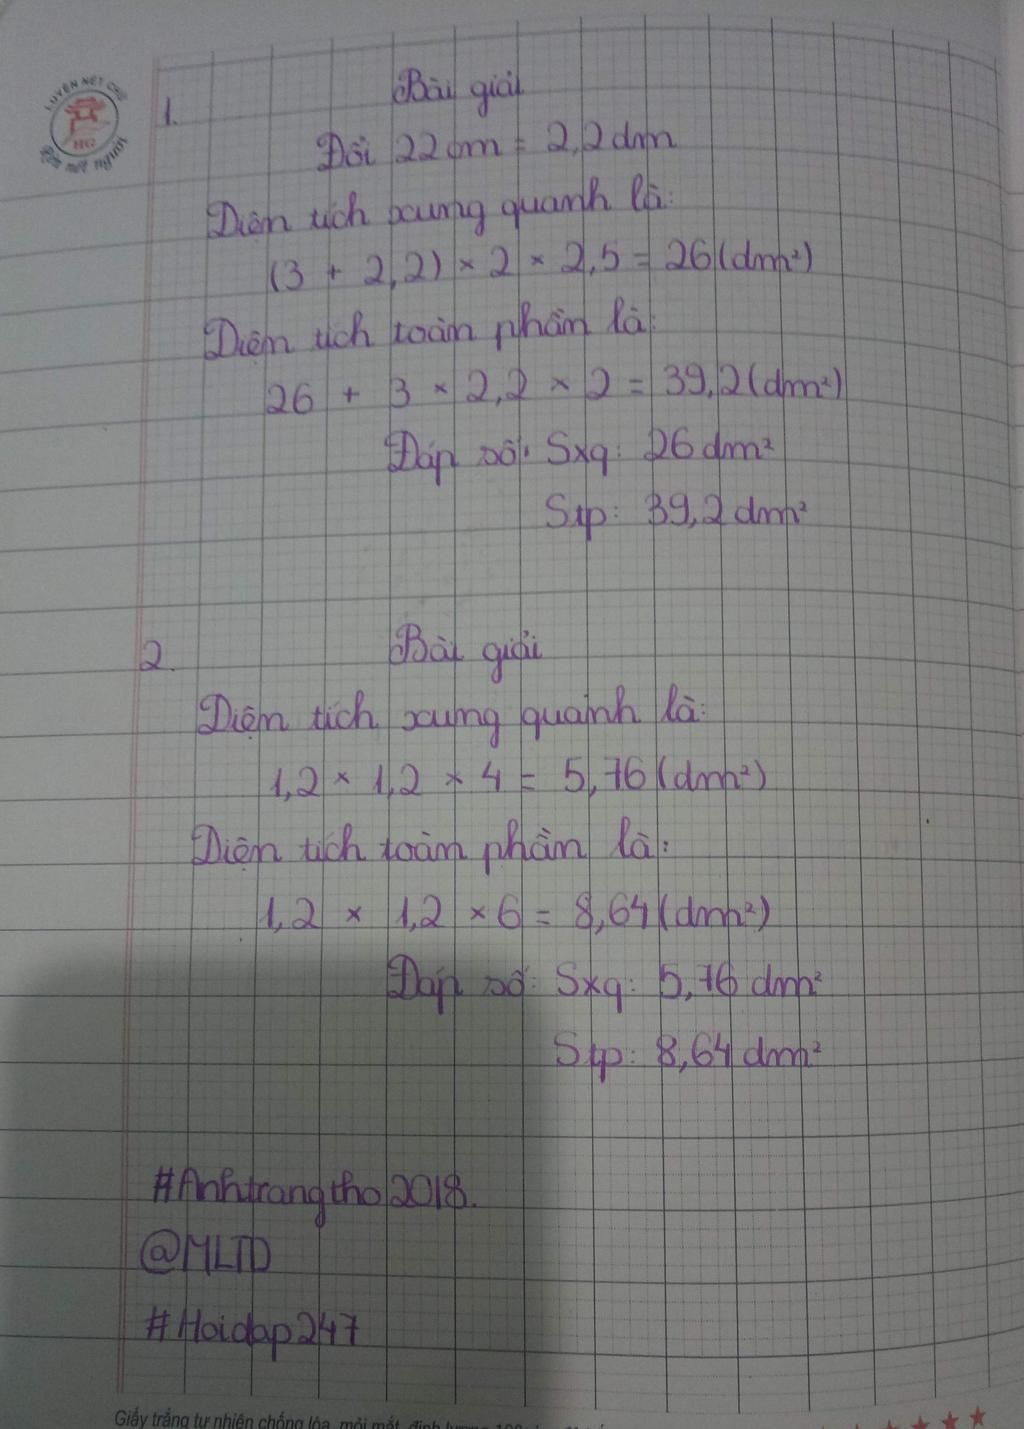 LUYỆN NÉT CHỮ
HG
Rèn nết người
1. Bài giải
Đổi 22cm = 2,2dm
Diện tích xung quanh là:
(3 + 2,2) × 2 × 2,5 = 26(dm²)
Diện tích toàn phần là:
26 + 3 × 2,2 × 2 = 39,2(dm²)
Đáp số: Sxq: 26dm²
Stp: 39,2dm²
2. Bài giải
Diện tích xung quanh là:
1,2 × 1,2 × 4 = 5,76(dm²)
Diện tích toàn phần là:
1,2 × 1,2 × 6 = 8,64(dm²)
Đáp số: Sxq: 5,76 dm²
Stp: 8,64 dm²
#Anhtrangtho2018.
@MLTD
#Hoidap247
Giấy trắng tự nhiên chống lóa, mỏi mắt, định lượng